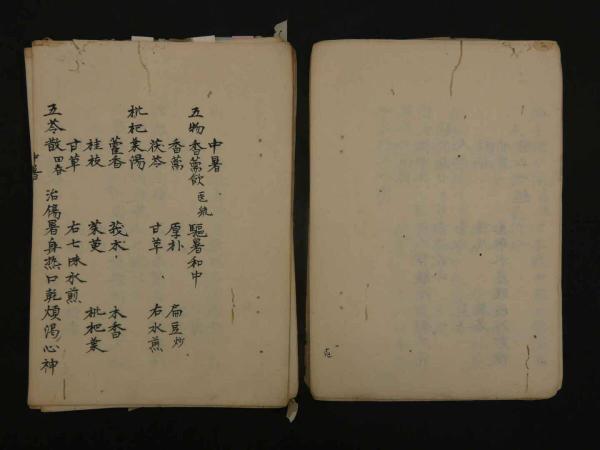 中暑
五物香薷飲 医統 驅暑和中
香薷 厚朴 扁豆炒
茯苓 甘草 右水煎
枇杷葉湯
藿香 莪朮 木香
桂枝 茱萸 枇杷葉
甘草 右七味水煎
五苓散 回春 治傷暑身熱口乾煩渴心神
中暑